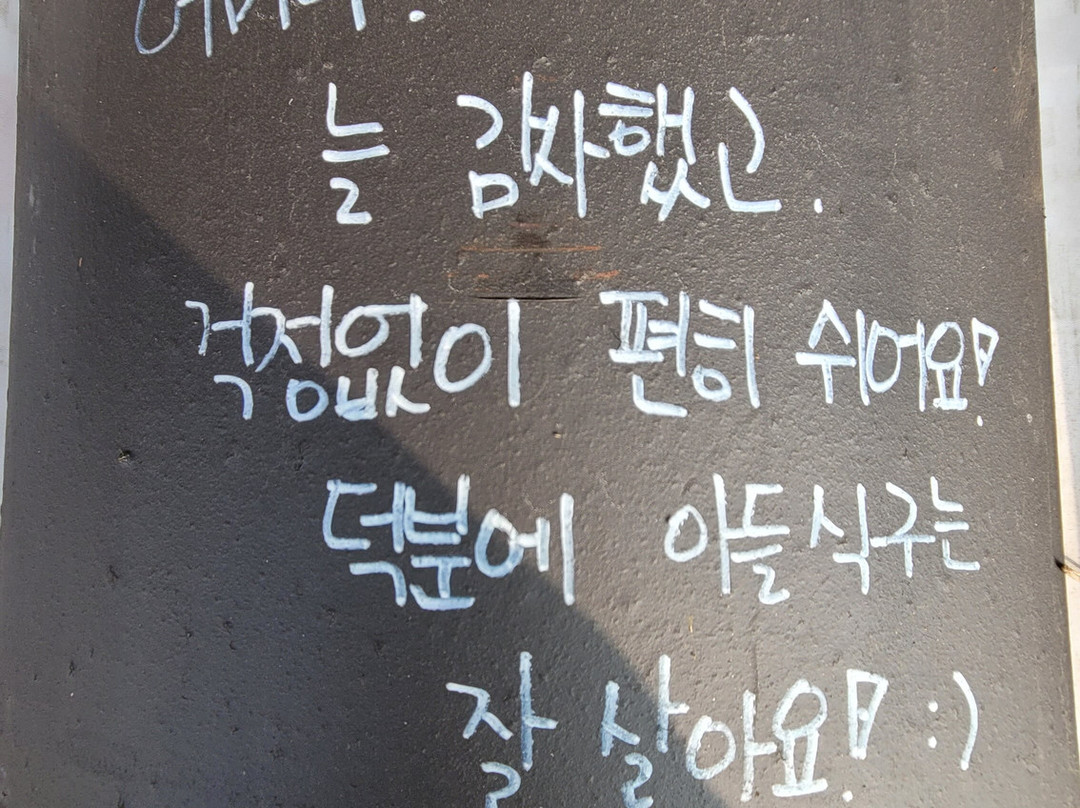 늘 감사했고.
걱정없이 편히 쉬어요!
덕분에 아들식구는
잘 살아요! :)